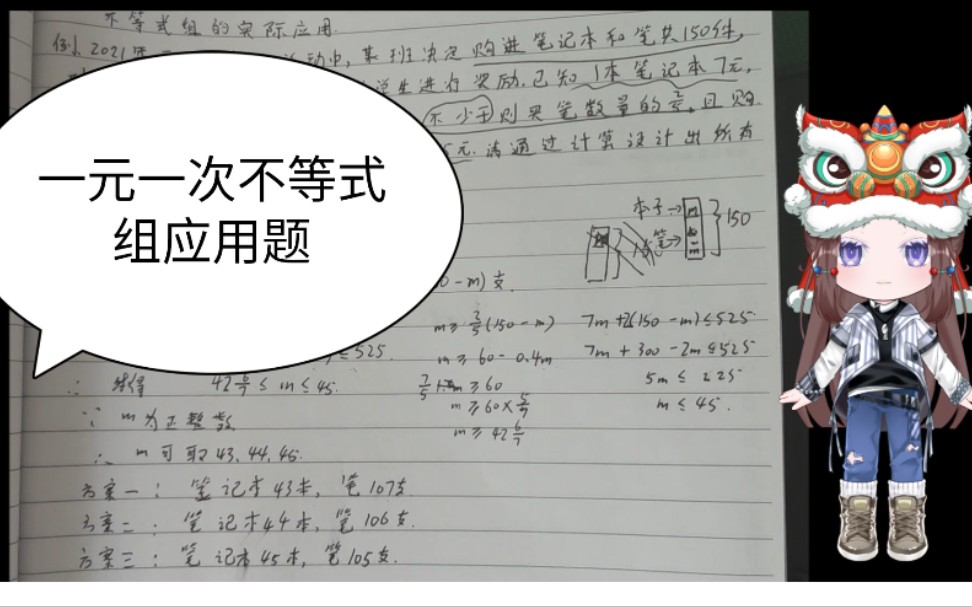 不等式组的实际应用.
例2.2021年 动中,某班决定购进笔记本和笔共150件,
学生进行奖励.已知1本笔记本7元,
不少于则买笔数量的 2/5,且购
5元.请通过计算设计出所有
一元一次不等式
组应用题
本子→ m
笔→ } 150
0-m)支.
m≥2/5(150-m) 7m+2(150-m)≤525
≤525. m≥60-0.4m 7m+300-2m≤525
∴ 解得 42 6/7≤m≤45. 7/5m≥60 5m≤225
∵ m为正整数 m≥60×5/7 m≤45.
m≥42 6/7
∴ m可取43,44,45.
方案一:笔记本43本,笔107支
方案二:笔记本44本,笔106支.
方案三:笔记本45本,笔105支.